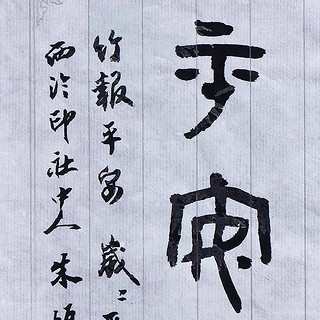 平安
竹報平安 歲=平
西泠印社中人 朱恒